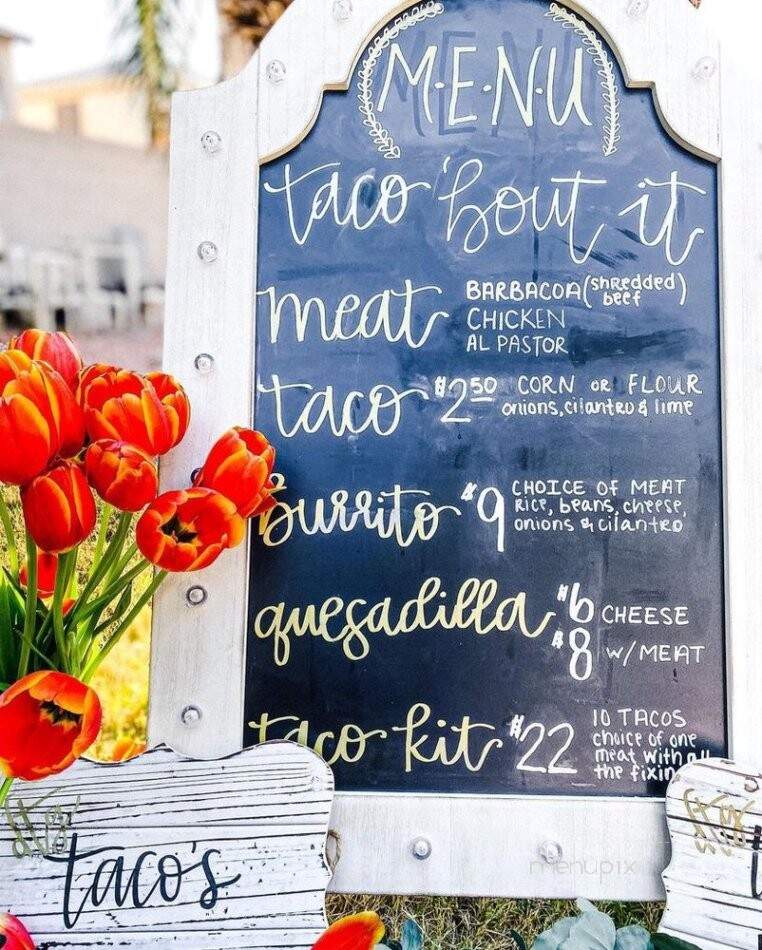 M·E·N·U
taco 'bout it
meat BARBACOA (shredded beef)
CHICKEN
AL PASTOR
taco $2.50 CORN or FLOUR
onions, cilantro & lime
burrito $9 CHOICE of MEAT
Rice, beans, cheese,
onions & cilantro
quesadilla $6 CHEESE
$8 w/MEAT
taco kit $22 10 TACOS
choice of one
meat with all
the fixin
taco's
menupix